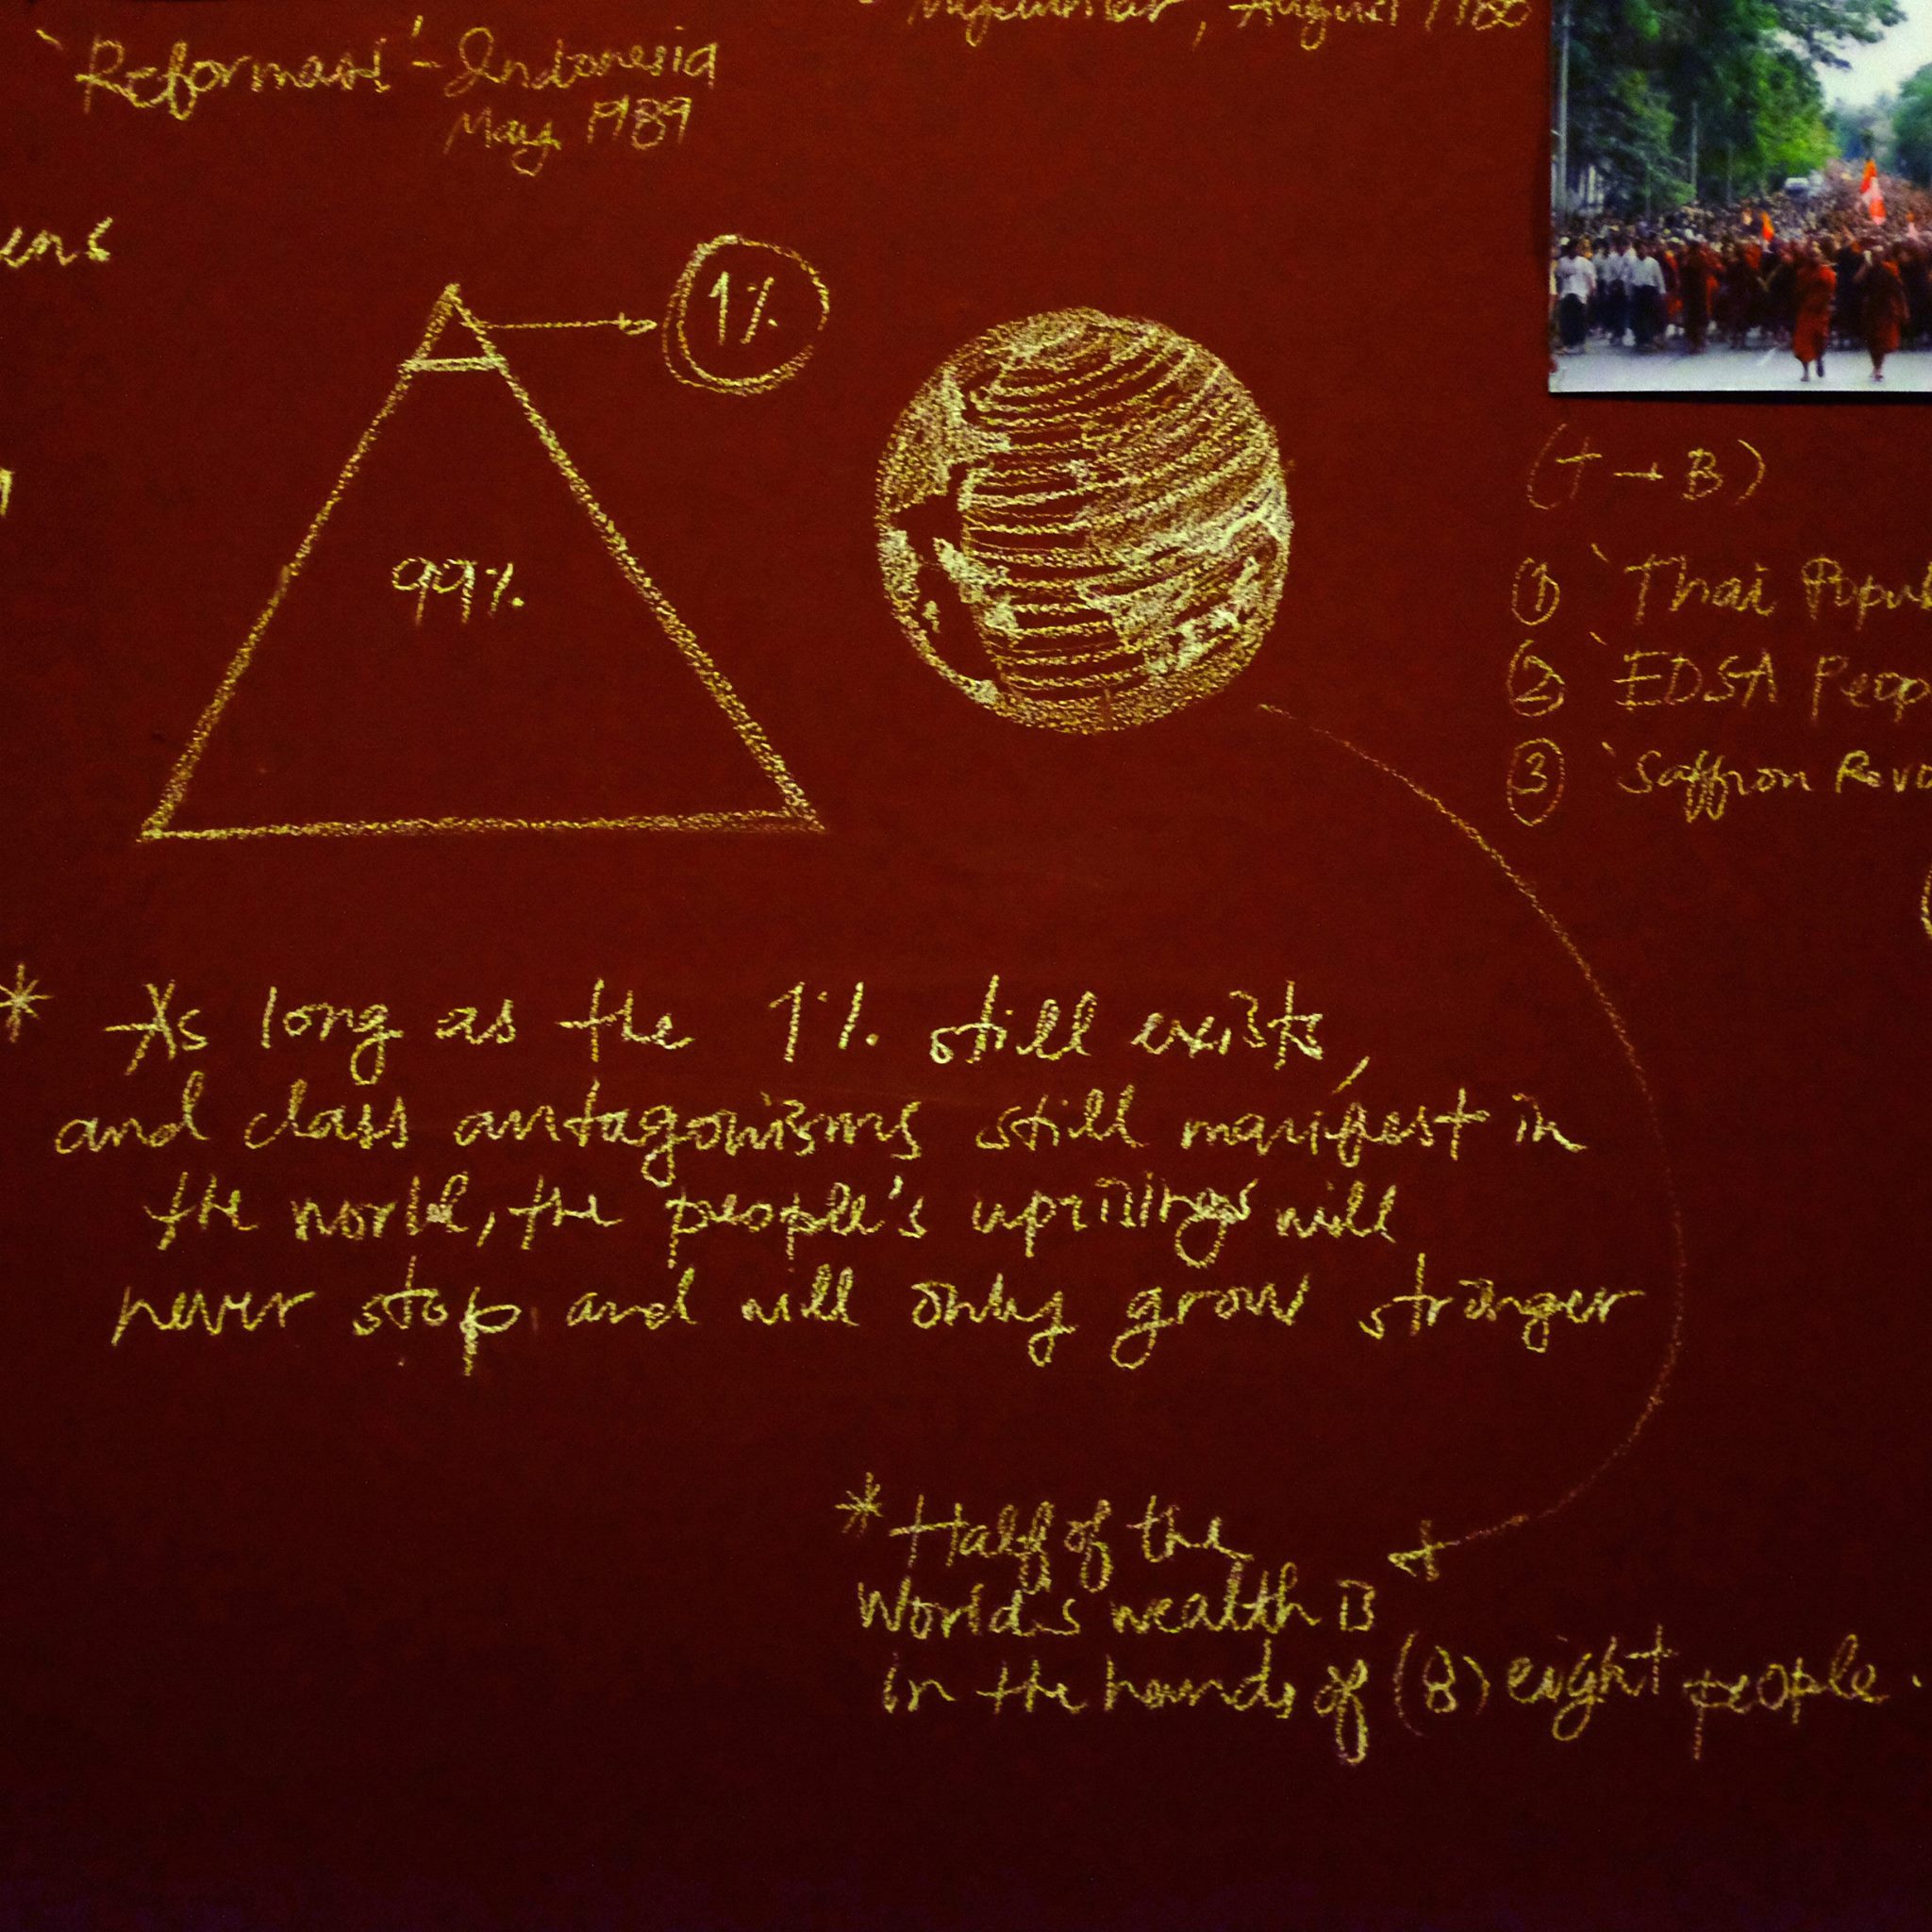 'Reformasi' - Indonesia
May 1989
Myanmar, August 1988
ens
1%
99%
(T → B)
① 'Thai Popul
② 'EDSA Peop
③ 'Saffron Revo
* As long as the 1% still exists,
and class antagonisms still manifest in
the world, the people's uprisings will
never stop and will only grow stronger
* Half of the
World's wealth is
in the hands of (8) eight people.